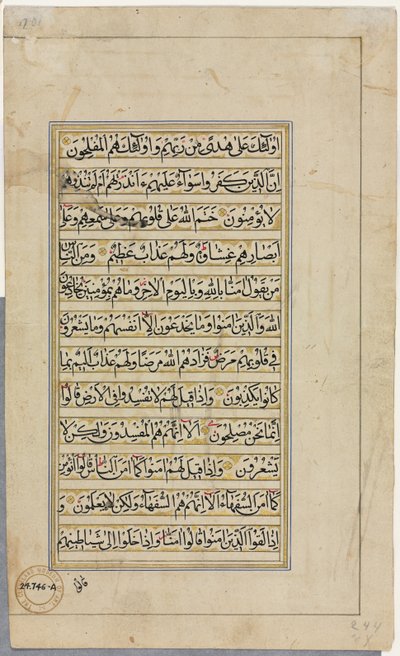 اُولٰئِكَ عَلٰى هُدًى مِنْ رَبِّهِمْ وَاُولٰئِكَ هُمُ الْمُفْلِحُونَ
اِنَّ الَّذِينَ كَفَرُوا سَوَاءٌ عَلَيْهِمْ ءَاَنْذَرْتَهُمْ اَمْ لَمْ تُنْذِرْهُمْ
لَا يُؤْمِنُونَ خَتَمَ اللّٰهُ عَلٰى قُلُوبِهِمْ وَعَلٰى سَمْعِهِمْ وَعَلٰى
اَبْصَارِهِمْ غِشَاوَةٌ وَلَهُمْ عَذَابٌ عَظِيمٌ وَمِنَ النَّاسِ
مَنْ يَقُولُ اٰمَنَّا بِاللّٰهِ وَبِالْيَوْمِ الْاٰخِرِ وَمَا هُمْ بِمُؤْمِنِينَ يُخَادِعُونَ
اللّٰهَ وَالَّذِينَ اٰمَنُوا وَمَا يَخْدَعُونَ اِلَّا اَنْفُسَهُمْ وَمَا يَشْعُرُونَ
فِي قُلُوبِهِمْ مَرَضٌ فَزَادَهُمُ اللّٰهُ مَرَضًا وَلَهُمْ عَذَابٌ اَلِيمٌ بِمَا
كَانُوا يَكْذِبُونَ وَاِذَا قِيلَ لَهُمْ لَا تُفْسِدُوا فِي الْاَرْضِ قَالُوا
اِنَّمَا نَحْنُ مُصْلِحُونَ اَلَا اِنَّهُمْ هُمُ الْمُفْسِدُونَ وَلٰكِنْ لَا
يَشْعُرُونَ وَاِذَا قِيلَ لَهُمْ اٰمِنُوا كَمَا اٰمَنَ النَّاسُ قَالُوا اَنُؤْمِنُ
كَمَا اٰمَنَ السُّفَهَاءُ اَلَا اِنَّهُمْ هُمُ السُّفَهَاءُ وَلٰكِنْ لَا يَعْلَمُونَ وَ
اِذَا لَقُوا الَّذِينَ اٰمَنُوا قَالُوا اٰمَنَّا وَاِذَا خَلَوْا اِلٰى شَيَاطِينِهِمْ
قالوا
24.746-A
244